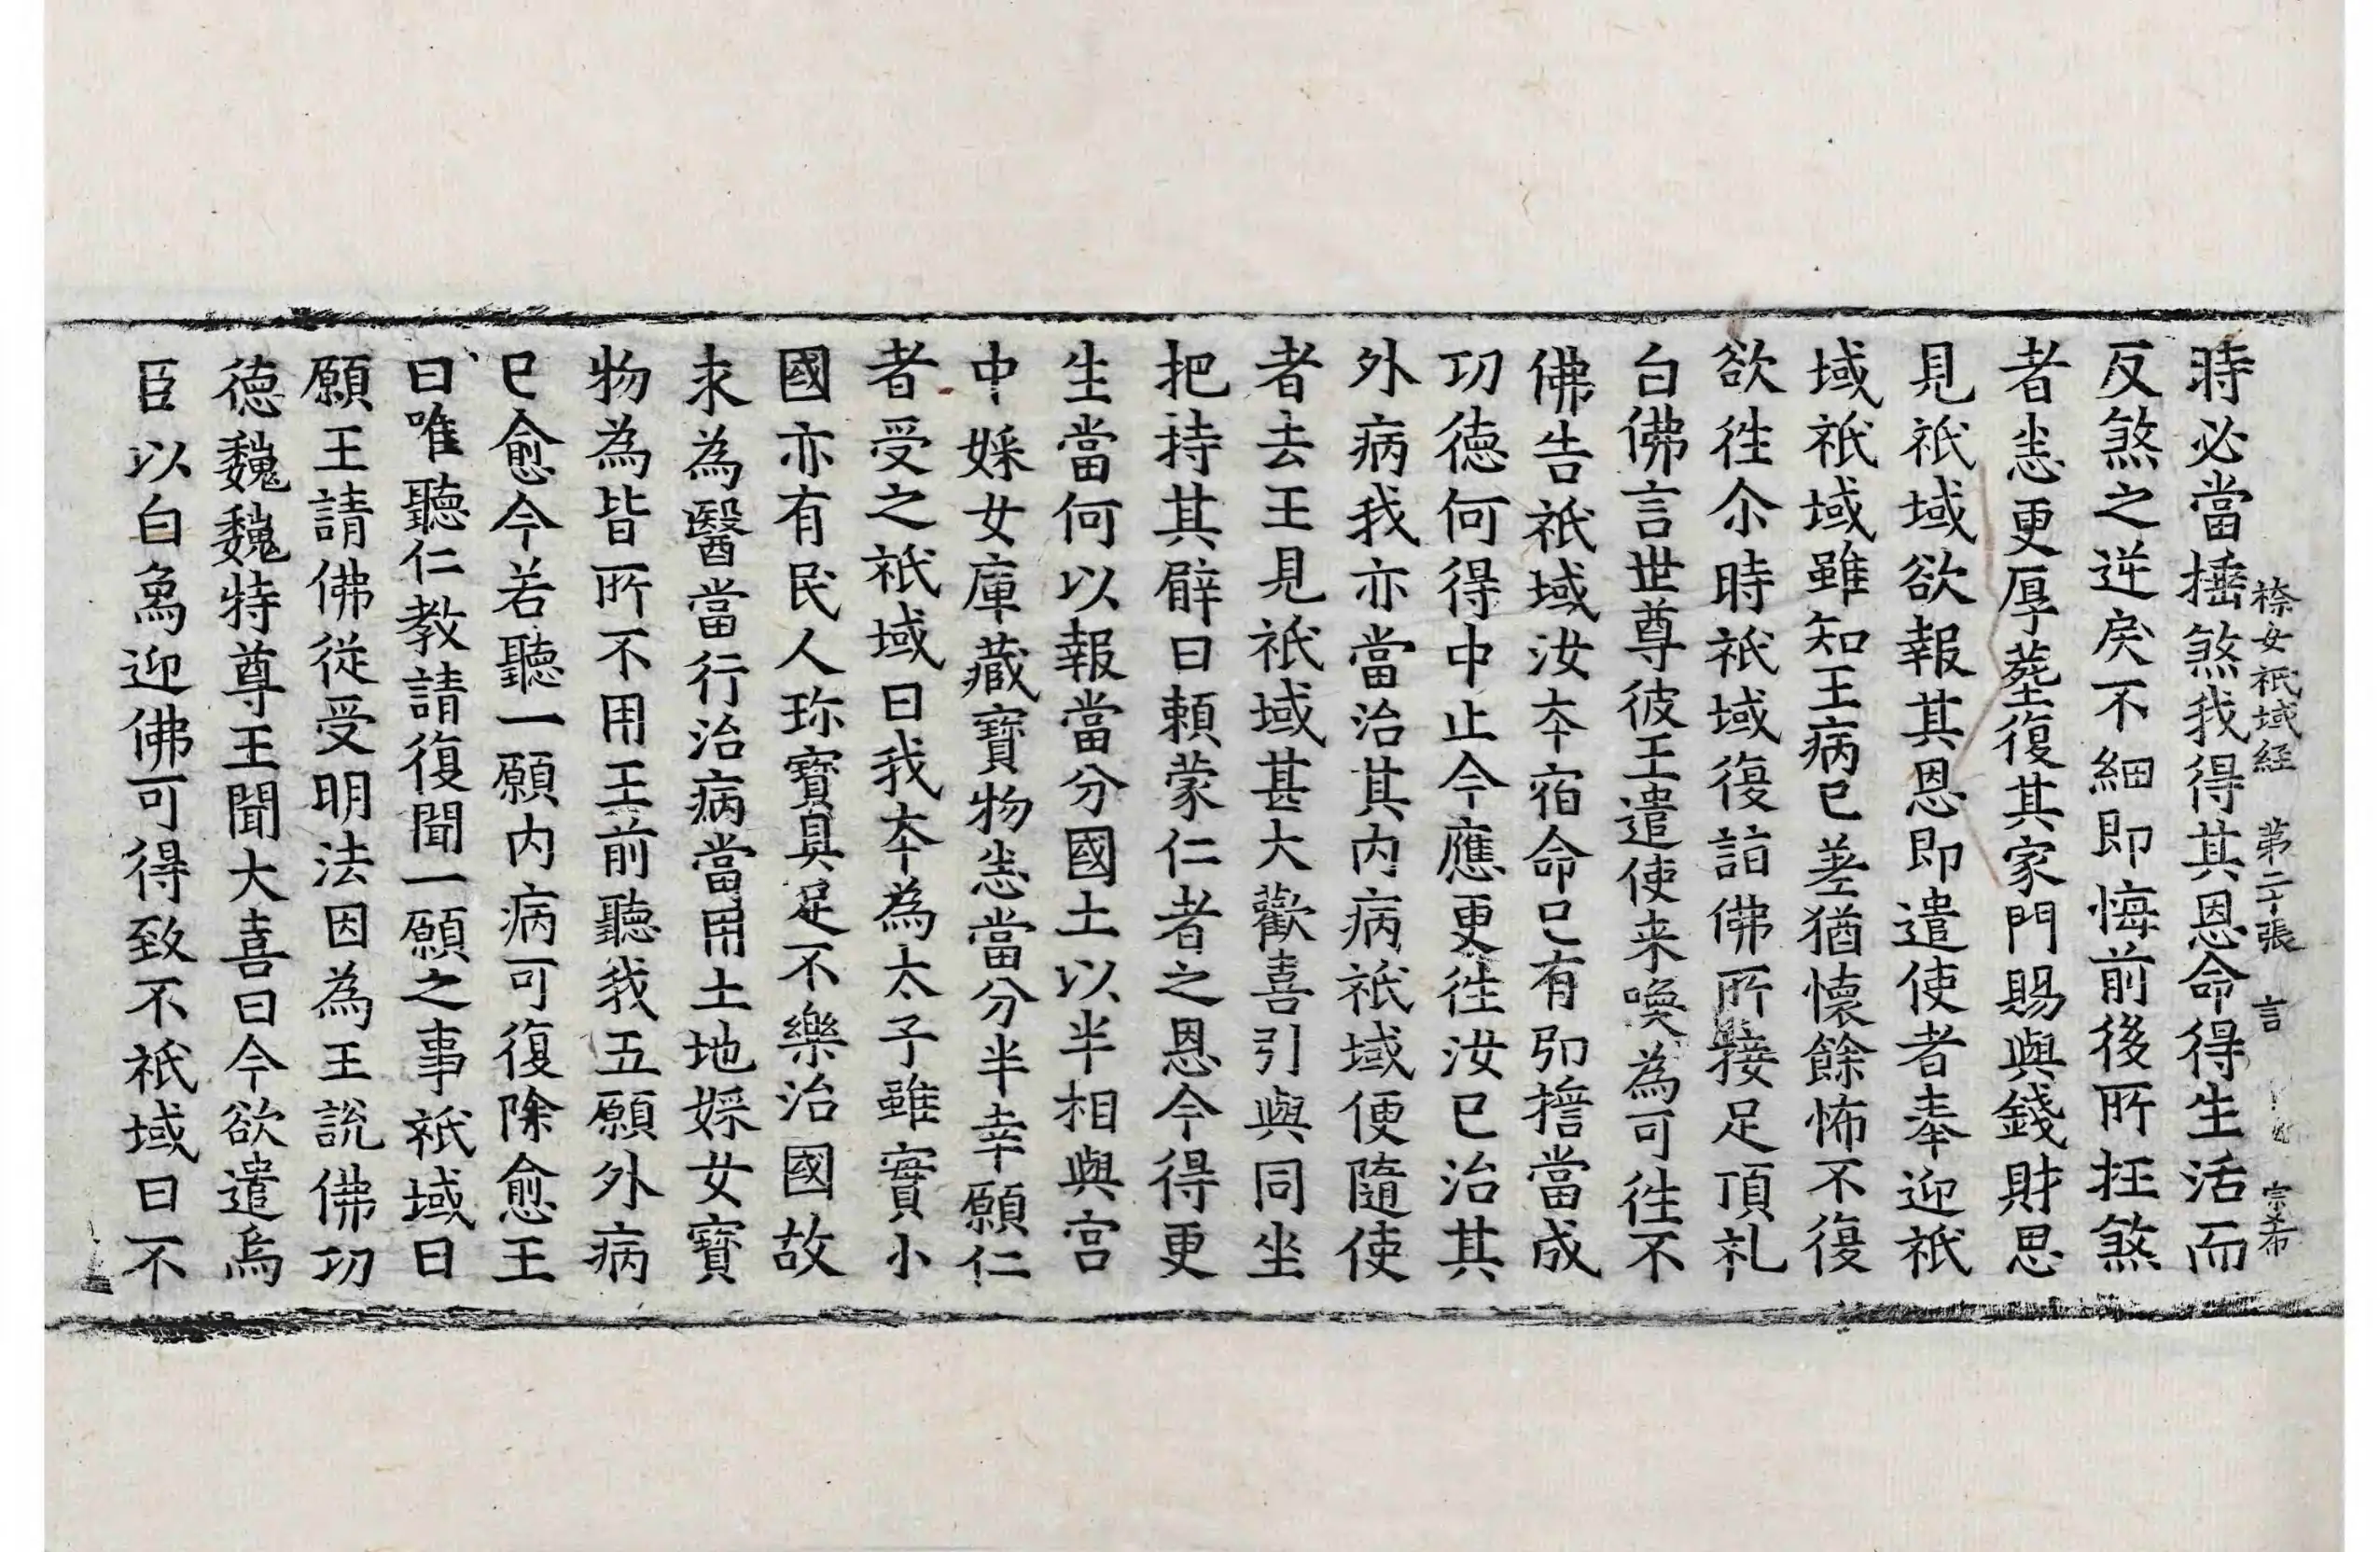 㮈女祇域經 第二十張 言 宗希
時必當捶煞我得其恩命得生活而
反煞之逆戾不細即悔前後所抂煞
者恙更厚塟復其家門賜與錢財思
見祇域欲報其恩即遣使者奉迎祇
域祇域雖知王病已差猶懷餘怖不復
欲往尒時祇域復詣佛所接足頂礼
白佛言世尊彼王遣使来喚為可往不
佛告祇域汝本宿命已有弘擔當成
功德何得中止今應更往汝已治其
外病我亦當治其内病祇域便隨使
者去王見祇域甚大歡喜引與同坐
把持其臂曰頼蒙仁者之恩今得更
生當何以報當分國土以半相與宫
中婇女庫藏寶物恙當分半幸願仁
者受之祇域曰我本為太子雖實小
國亦有民人珎寶具足不樂治國故
求為醫當行治病當用土地婇女寶
物為皆所不用王前聽我五願外病
已愈今若聽一願内病可復除愈王
曰唯聽仁教請復聞一願之事祇域曰
願王請佛從受明法因為王說佛功
德魏魏特尊王聞大喜曰今欲遣烏
臣以白象迎佛可得致不祇域曰不